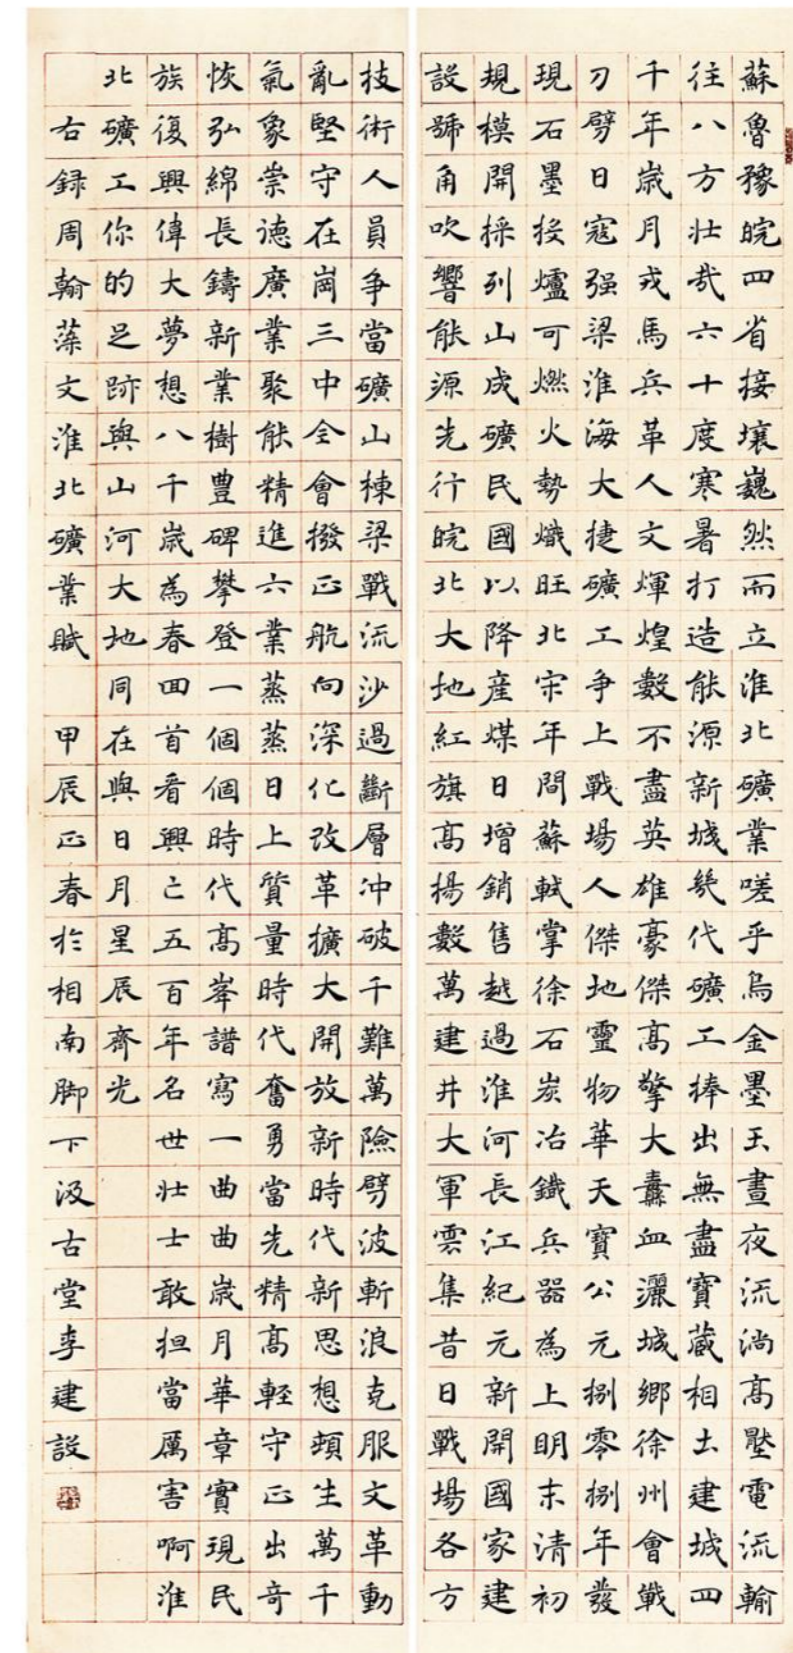 蘇魯豫皖四省接壤巍然而立淮北礦業嗟乎烏金墨玉晝夜流淌高壓電流輸
往八方壯哉六十度寒暑打造能源新城幾代礦工捧出無盡寶藏相土建城四
千年歲月戎馬兵革人文煇煌數不盡英雄豪傑高擎大纛血灑城鄉徐州會戰
刀劈日寇强梁淮海大捷礦工争上戰場人傑地靈物華天寶公元捌零捌年發
現石墨投爐可燃火勢熾旺北宋年間蘇軾掌徐石炭冶鐵兵器為上明末清初
規模開採列山成礦民國以降産煤日增銷售越過淮河長江紀元新開國家建
設號角吹響能源先行皖北大地紅旗高揚數萬建井大軍雲集昔日戰場各方
技術人員争當礦山棟梁戰流沙過斷層冲破千難萬險劈波斬浪克服文革動
亂堅守在崗三中全會撥正航向深化改革擴大開放新時代新思想頓生萬千
氣象崇德廣業聚能精進六業蒸蒸日上質量時代奮勇當先精高輕守正出奇
恢弘綿長鑄新業樹豐碑攀登一個個時代高峯譜寫一曲曲歲月華章實現民
族復興偉大夢想八千歲為春回首看興亡五百年名世壯士敢担當厲害啊淮
北礦工你的足跡與山河大地同在與日月星辰齊光
右録周翰藻文淮北礦業賦 甲辰正春於相南脚下汲古堂李建設